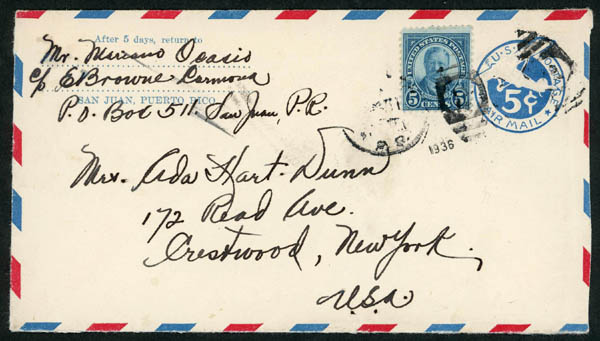 After 5 days, return to
Mr. Mariano Ocasio
c/o E Browne Carmona
SAN JUAN, PUERTO RICO
P.O. Box 511 San Juan, P.R.
UNITED STATES POSTAGE
5 CENTS 5
U.S. POSTAGE
5¢
AIR MAIL
1936
Mrs. Ada Hart-Dunn
172 Read Ave.
Crestwood, New York,
U.S.A.